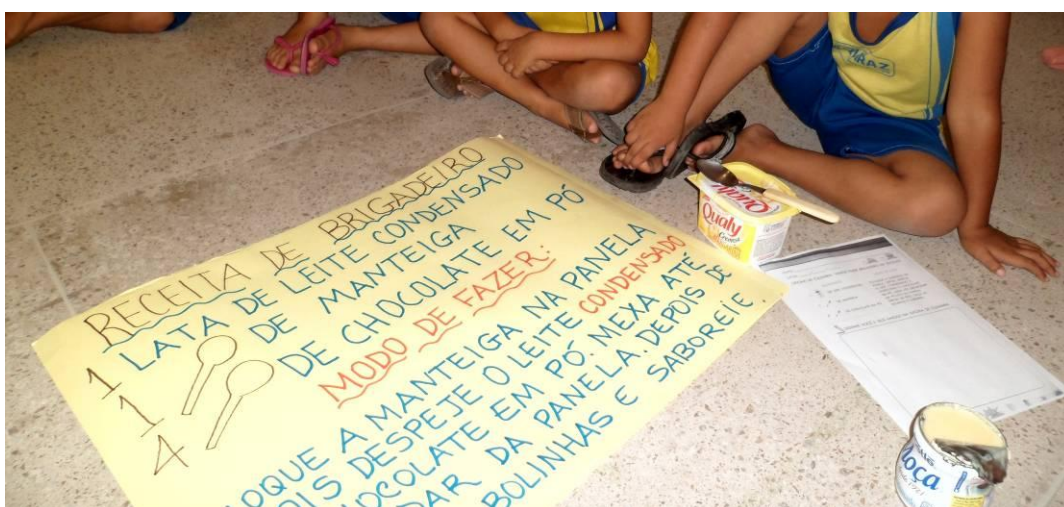 RECEITA DE BRIGADEIRO
1 LATA DE LEITE CONDENSADO
1 DE MANTEIGA
4 DE CHOCOLATE EM PÓ
MODO DE FAZER:
LOQUE A MANTEIGA NA PANELA
OIS DESPEJE O LEITE CONDENSADO
OCOLATE EM PÓ. MEXA ATÉ
DAR DA PANELA. DEPOIS DE
BOLINHAS E SABOREIE.
Qualy
Qualy
Cremosa
Moça
RAZ